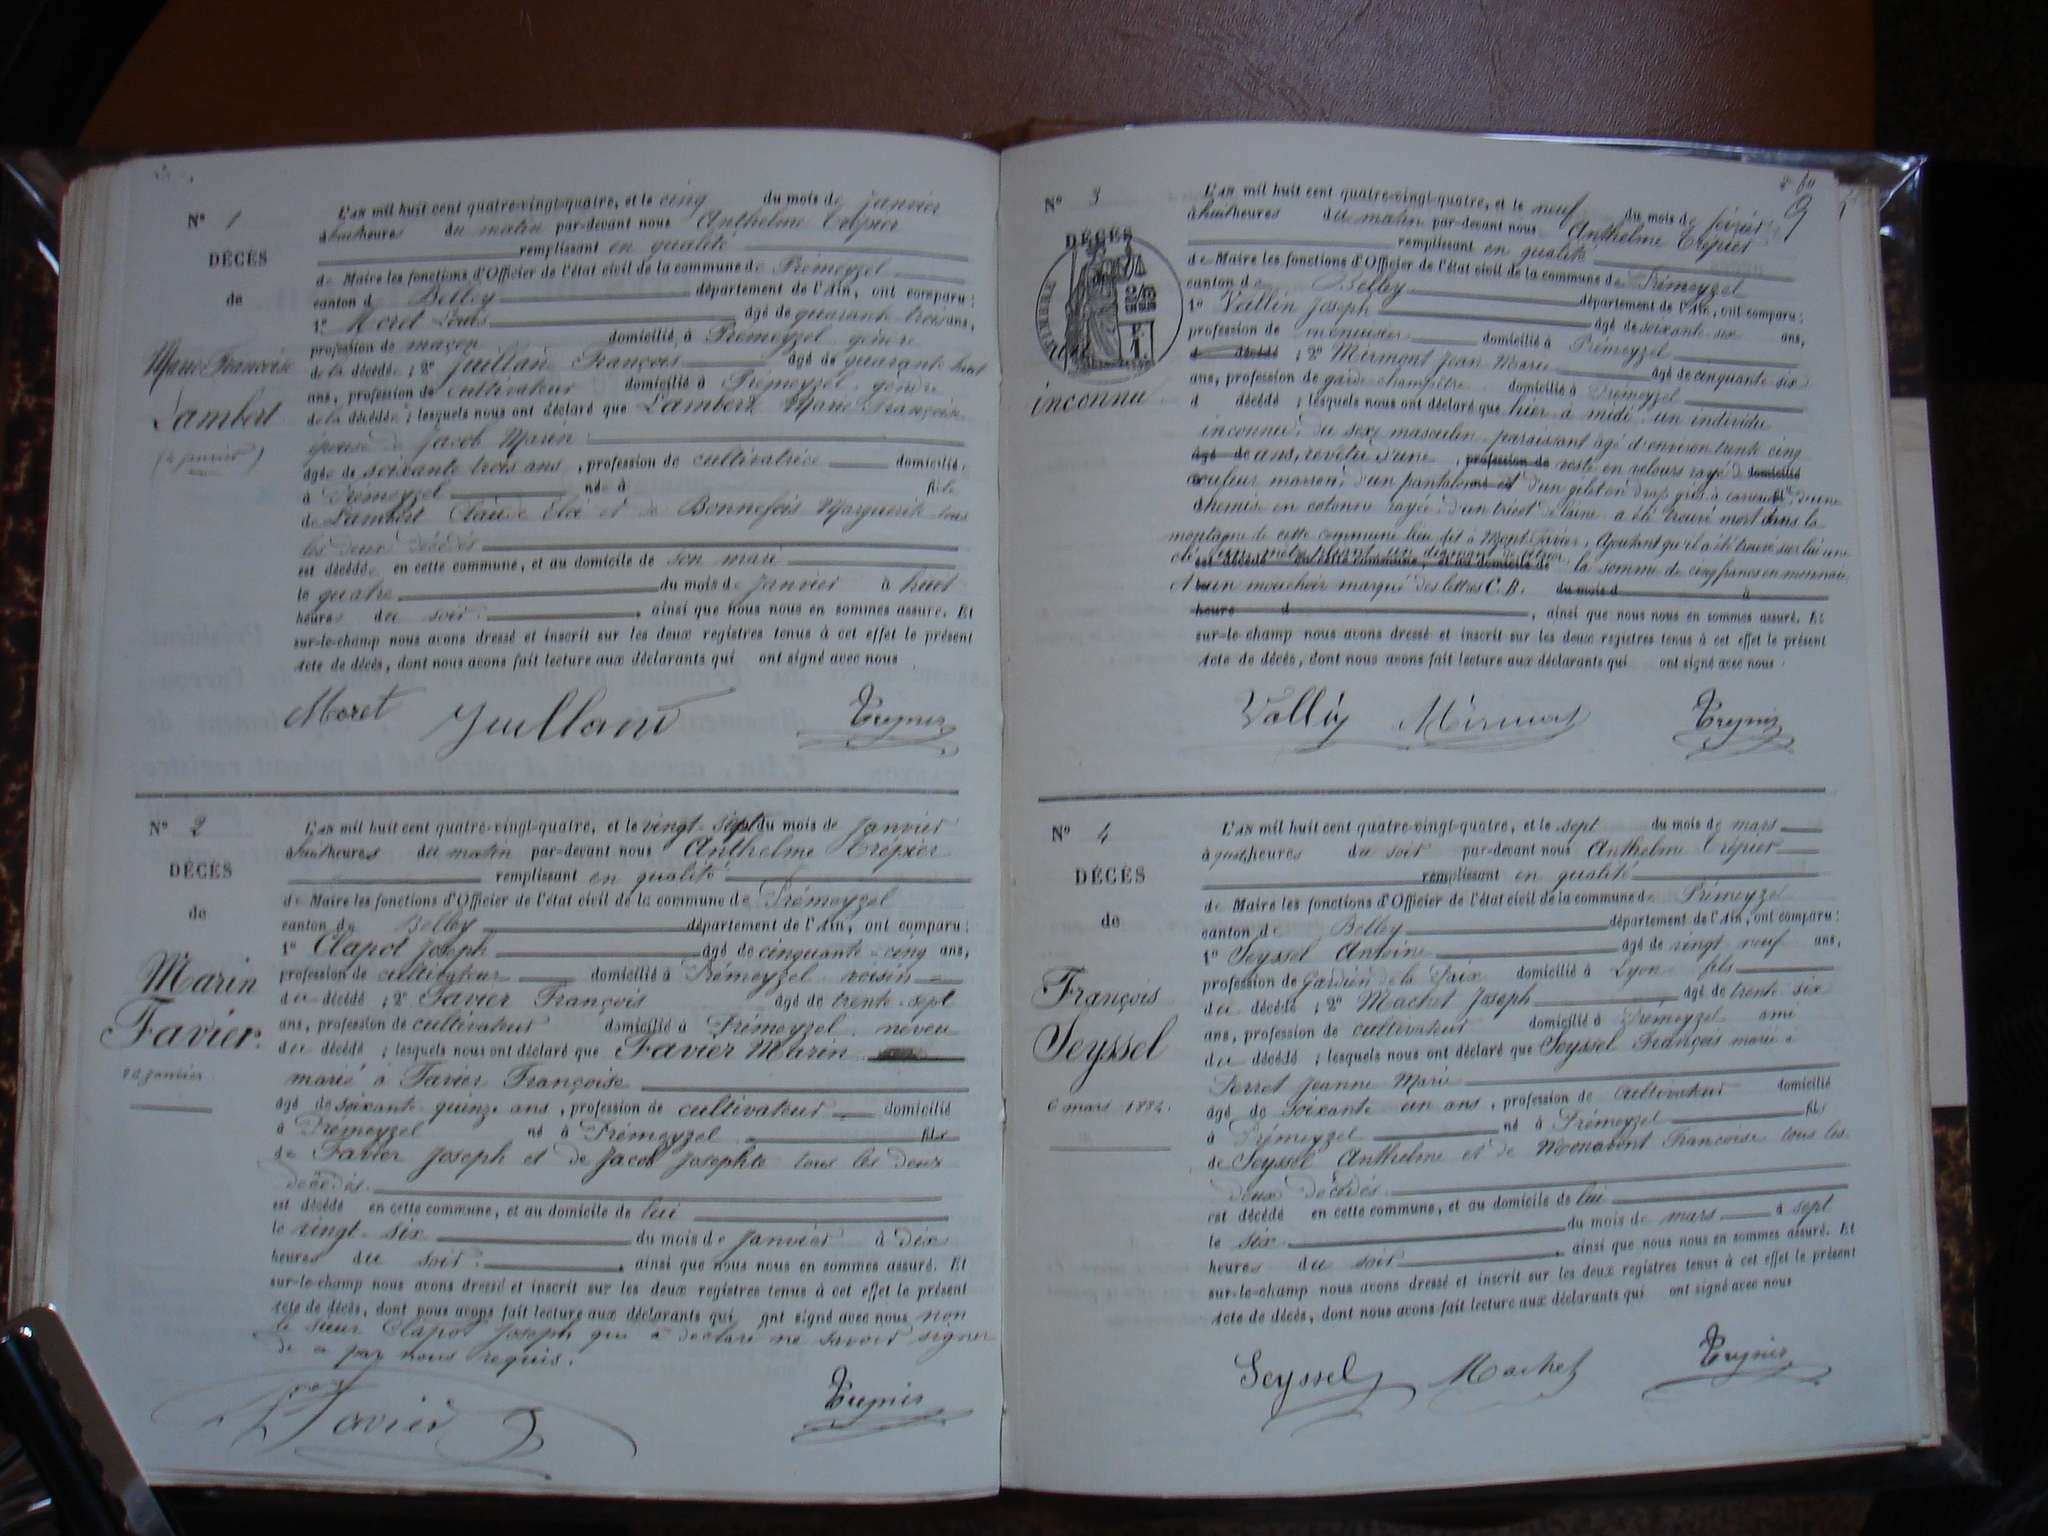 N° 1
DÉCÈS
de
Marie Françoise
Lambert
(4 janvier)
L'AN mil huit cent quatre-vingt-quatre, et le cinq du mois de janvier
à huit heures du matin par-devant nous Anthelme Trépier
remplissant en qualité
de Maire les fonctions d'Officier de l'état civil de la commune de Prémeyzel
canton de Belley département de l'Ain, ont comparu :
1° Moret Louis âgé de quarante trois ans,
profession de maçon domicilié à Prémeyzel gendre
de la décédée ; 2° Juilland François âgé de quarante huit
ans, profession de cultivateur domicilié à Prémeyzel gendre
de la décédée ; lesquels nous ont déclaré que Lambert Marie Françoise
épouse de Jacob Marin
âgée de soixante trois ans, profession de cultivatrice domiciliée
à Prémeyzel née à fille
de Lambert Claude Eloi et de Bonnefois Marguerite tous
les deux décédés
est décédée en cette commune, et au domicile de son mari
le quatre du mois de janvier à huit
heures du soir, ainsi que nous nous en sommes assuré. Et
sur-le-champ nous avons dressé et inscrit sur les deux registres tenus à cet effet le présent
acte de décès, dont nous avons fait lecture aux déclarants qui ont signé avec nous
Moret Juilland Trepier
N° 2
DÉCÈS
de
Marin
Favier
janvier
L'AN mil huit cent quatre-vingt-quatre, et le vingt-sept du mois de janvier
à huit heures du matin par-devant nous Anthelme Trépier
remplissant en qualité
de Maire les fonctions d'Officier de l'état civil de la commune de Prémeyzel
canton de Belley département de l'Ain, ont comparu :
1° Clapot Joseph âgé de cinquante-cinq ans,
profession de cultivateur domicilié à Prémeyzel voisin
du décédé ; 2° Favier François âgé de trente-sept
ans, profession de cultivateur domicilié à Prémeyzel neveu
du décédé ; lesquels nous ont déclaré que Favier Marin
marié à Favier Françoise
âgé de soixante quinze ans, profession de cultivateur domicilié
à Prémeyzel né à Prémeyzel fils
de Favier Joseph et de Jacob Josephte tous les deux
décédés
est décédé en cette commune, et au domicile de lui
le vingt-six du mois de janvier à dix
heures du soir, ainsi que nous nous en sommes assuré. Et
sur-le-champ nous avons dressé et inscrit sur les deux registres tenus à cet effet le présent
acte de décès, dont nous avons fait lecture aux déclarants qui ont signé avec nous non
le sieur Clapot Joseph qui a déclaré ne savoir signer
de ce par nous requis.
Favier Trepier
N° 3
DÉCÈS
2/5
inconnu
9
L'AN mil huit cent quatre-vingt-quatre, et le neuf du mois de février
à huit heures du matin par-devant nous Anthelme Trépier
remplissant en qualité
de Maire les fonctions d'Officier de l'état civil de la commune de Prémeyzel
canton de Belley département de l'Ain, ont comparu :
1° Vallin Joseph âgé de soixante six ans,
profession de menuisier domicilié à Prémeyzel
d décédé ; 2° Mermont Jean Marie âgé de cinquante six
ans, profession de garde champêtre domicilié à Prémeyzel
d décédé ; lesquels nous ont déclaré que hier à midi un individu
inconnu, du sexe masculin, paraissant âgé d'environ trente cinq
âgé de ans, revêtu d'une profession de veste en velours rayé domicilié
couleur marron, d'un pantalon et d'un gilet en drap gris à carreaux, d'une
chemise en cotonne rayée, d'un tricot de laine a été trouvé mort dans la
montagne de cette commune lieu dit à Mont Favier, Ajoutant qu'il a été trouvé sur lui une
clé, un mètre pliant, est décédé en cette commune, et au domicile de la somme de cinq francs en monnaie
et un mouchoir marqué des lettres C. B. du mois d à
heure d, ainsi que nous nous en sommes assuré. Et
sur-le-champ nous avons dressé et inscrit sur les deux registres tenus à cet effet le présent
acte de décès, dont nous avons fait lecture aux déclarants qui ont signé avec nous.
Vallin Mermont Trepier
N° 4
DÉCÈS
de
François
Seyssel
6 mars 1884.
L'AN mil huit cent quatre-vingt-quatre, et le sept du mois de mars
à heures du soir par-devant nous Anthelme Trépier
remplissant en qualité
de Maire les fonctions d'Officier de l'état civil de la commune de Prémeyzel
canton de Belley département de l'Ain, ont comparu :
1° Seyssel Antoine âgé de vingt neuf ans,
profession de Gardien de la Paix domicilié à Lyon fils
du décédé ; 2° Machet Joseph âgé de trente six
ans, profession de cultivateur domicilié à Prémeyzel ami
du décédé ; lesquels nous ont déclaré que Seyssel François marié à
Perret Jeanne Marie
âgé de soixante un ans, profession de cultivateur domicilié
à Prémeyzel né à Prémeyzel fils
de Seyssel Anthelme et de Françoise tous les
deux décédés
est décédé en cette commune, et au domicile de lui
le six du mois de mars à sept
heures du soir, ainsi que nous nous en sommes assuré. Et
sur-le-champ nous avons dressé et inscrit sur les deux registres tenus à cet effet le présent
acte de décès, dont nous avons fait lecture aux déclarants qui ont signé avec nous
Seyssel Machet Trepier